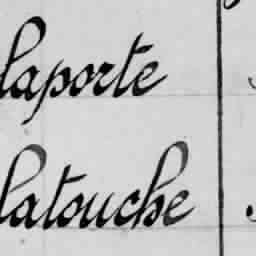 laporte
latouche